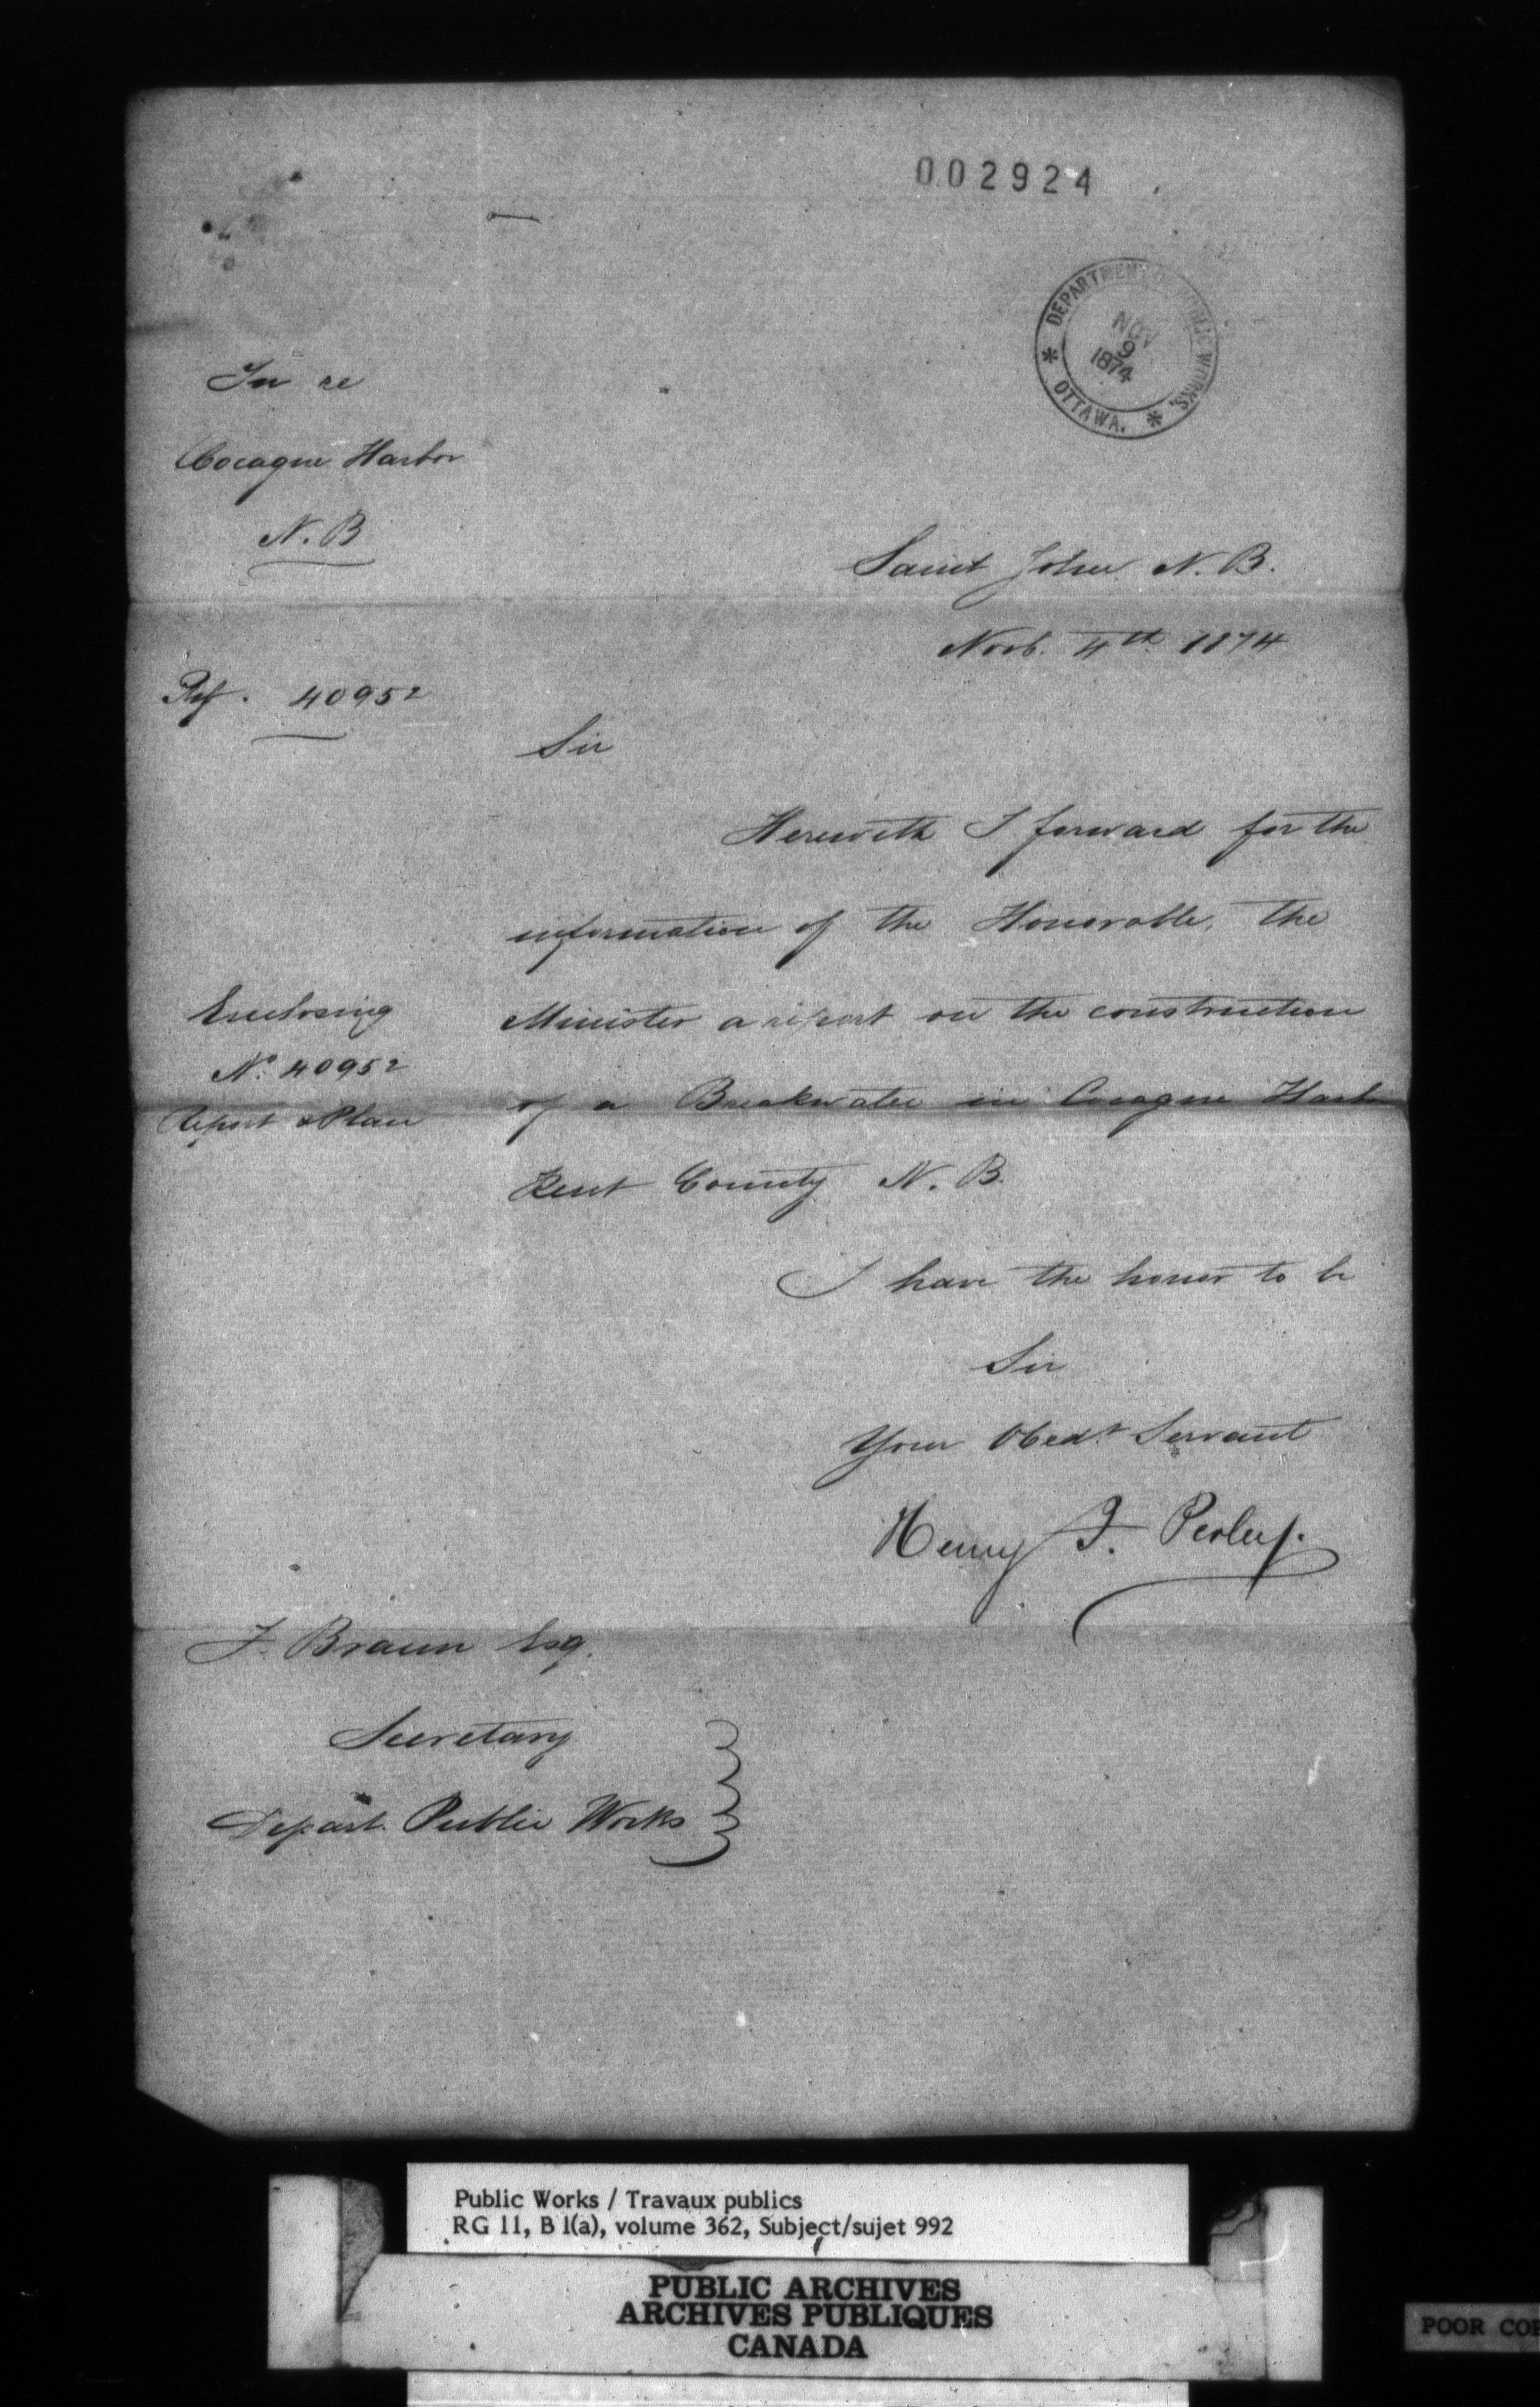 002924
DEPARTMENT OF PUBLIC WORKS.
NOV
9
1874
* OTTAWA. *
In re
Cocagne Harbor
N. B
Saint John N. B.
Novb. 4th 1874
Ref. 40952
Sir
Herewith I forward for the
information of the Honorable, the
Minister a report on the construction
of a Breakwater in Cocagne Harb
Kent County N. B.
Enclosing
No. 40952
Report & Plan
I have the honor to be
Sir
Your Obedt Servant
Henry F. Perley.
F. Braun Esq.
Secretary
Depart. Public Works
Public Works / Travaux publics
RG 11, B 1(a), volume 362, Subject/sujet 992
PUBLIC ARCHIVES
ARCHIVES PUBLIQUES
CANADA
POOR COP